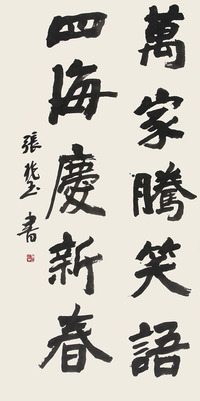 萬家騰笑語
四海慶新春
張龍玉書